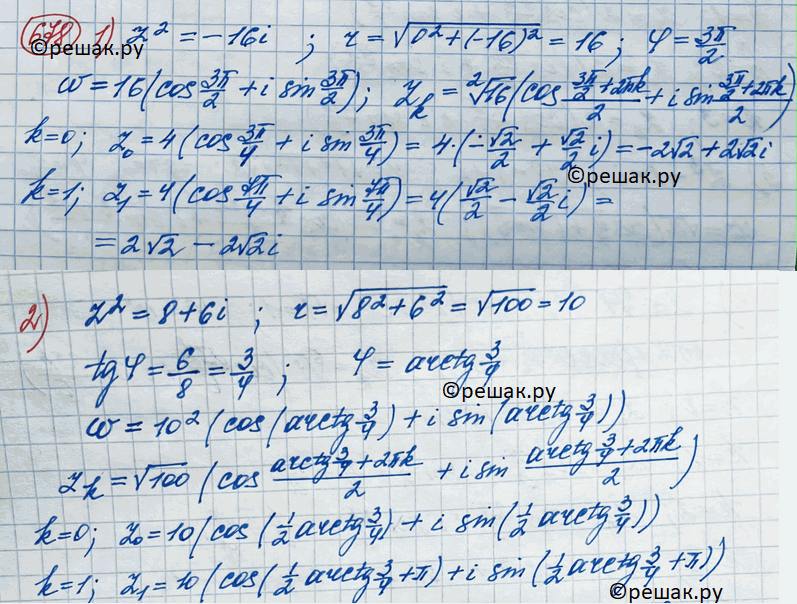 678 1) z² = -16i ; r = √(0²+(-16)²) = 16 ; φ = 3π/2
©решак.ру
ω = 16(cos 3π/2 + i sin 3π/2); z_k = ²√16 (cos (3π/2+2πk)/2 + i sin (3π/2+2πk)/2)
k=0; z₀ = 4(cos 3π/4 + i sin 3π/4) = 4·(-√2/2 + √2/2 i) = -2√2 + 2√2i
©решак.ру
k=1; z₁ = 4(cos 7π/4 + i sin 7π/4) = 4(√2/2 - √2/2 i) =
= 2√2 - 2√2i
2) z² = 8+6i ; r = √(8²+6²) = √100 = 10
tgφ = 6/8 = 3/4 ; φ = arctg 3/4
©решак.ру
ω = 10² (cos(arctg 3/4) + i sin(arctg 3/4))
z_k = √100 (cos (arctg 3/4 + 2πk)/2 + i sin (arctg 3/4 + 2πk)/2)
k=0; z₀ = 10(cos(1/2 arctg 3/4) + i sin(1/2 arctg 3/4))
k=1; z₁ = 10(cos(1/2 arctg 3/4 + π) + i sin(1/2 arctg 3/4 + π))
©решак.ру